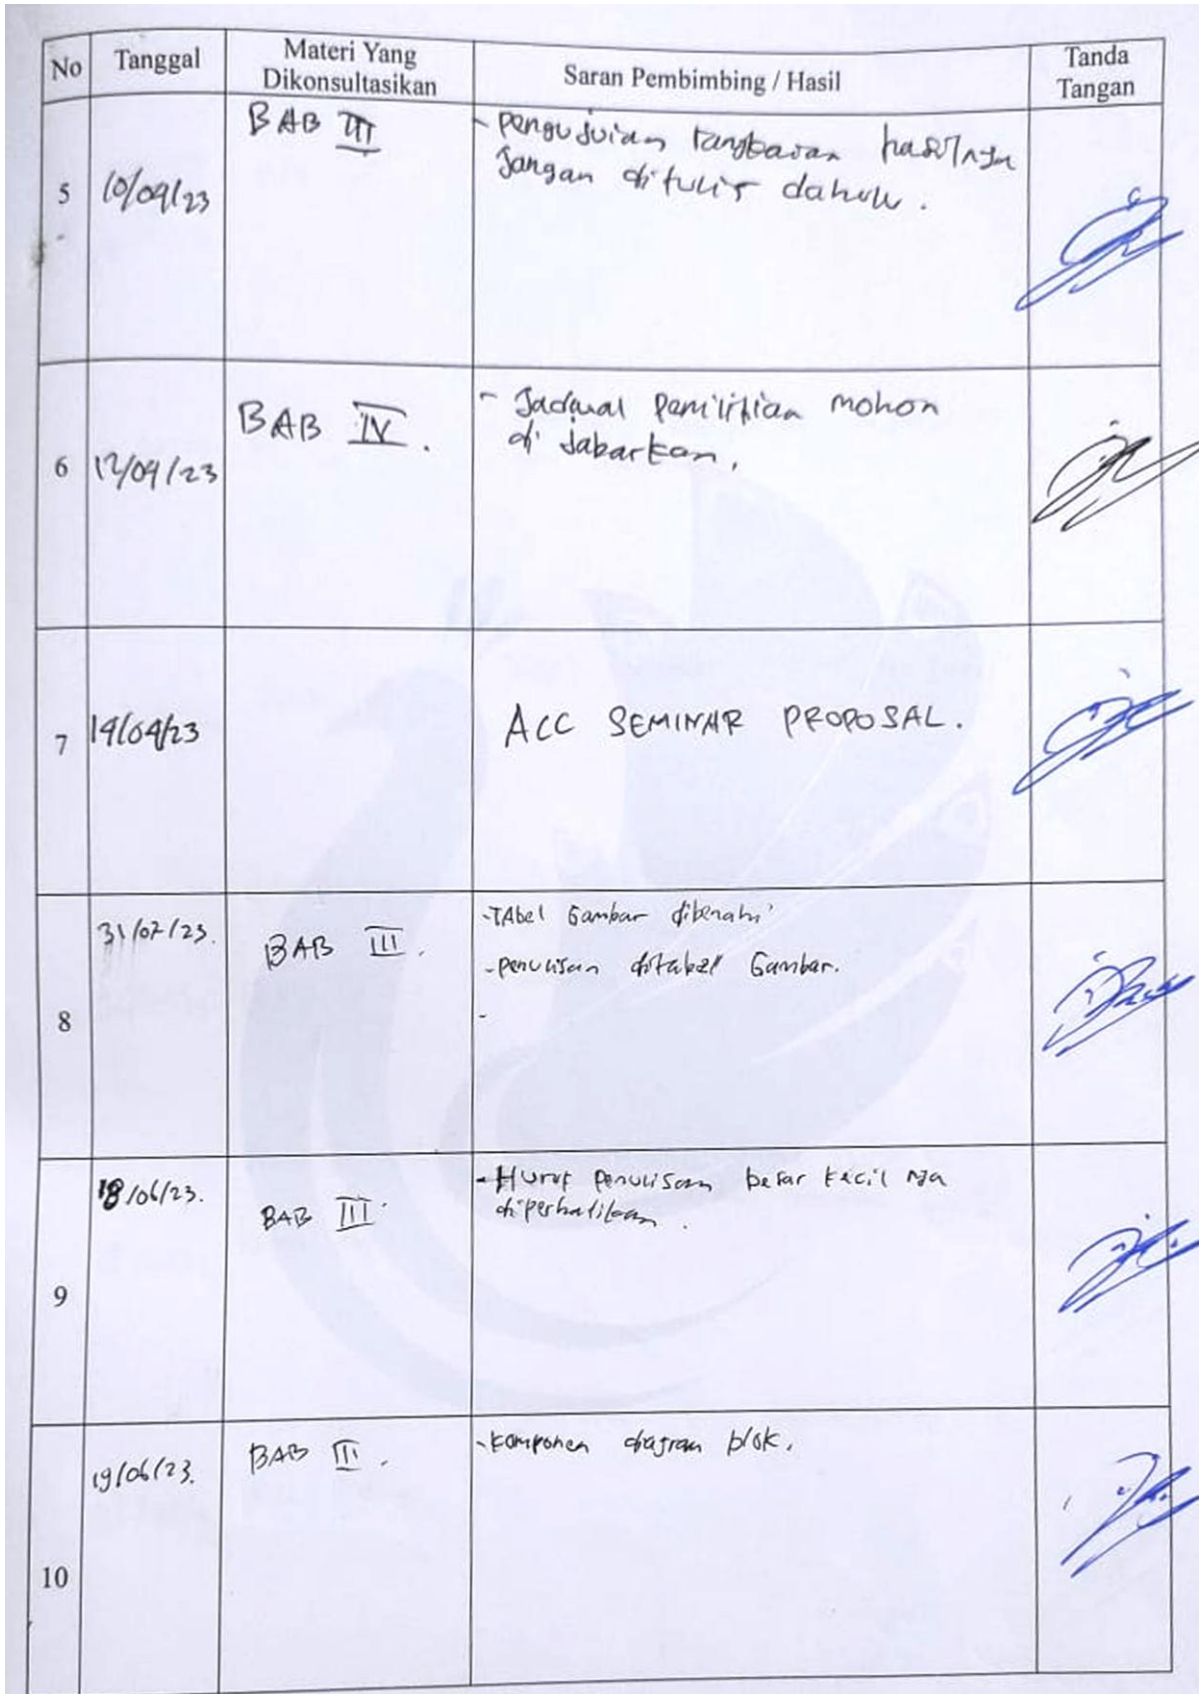 No Tanggal Materi Yang Dikonsultasikan Saran Pembimbing / Hasil Tanda Tangan
5 10/04/23 BAB III - pengujuian tangkaran hasilnya
jangan ditulis dahulu.
6 12/04/23 BAB IV. - Jadwal Penilitian mohon
di Jabarkan.
7 14/04/23 ACC SEMINAR PROPOSAL.
8 31/07/23. BAB III. - TAbel Gambar dibenahi
- penulisan ditabel Gambar.
-
9 18/06/23. BAB III. - Huruf Penulisan besar kecil nya
diperhatikan.
10 19/06/23. BAB III. - Komponen diagram blok.